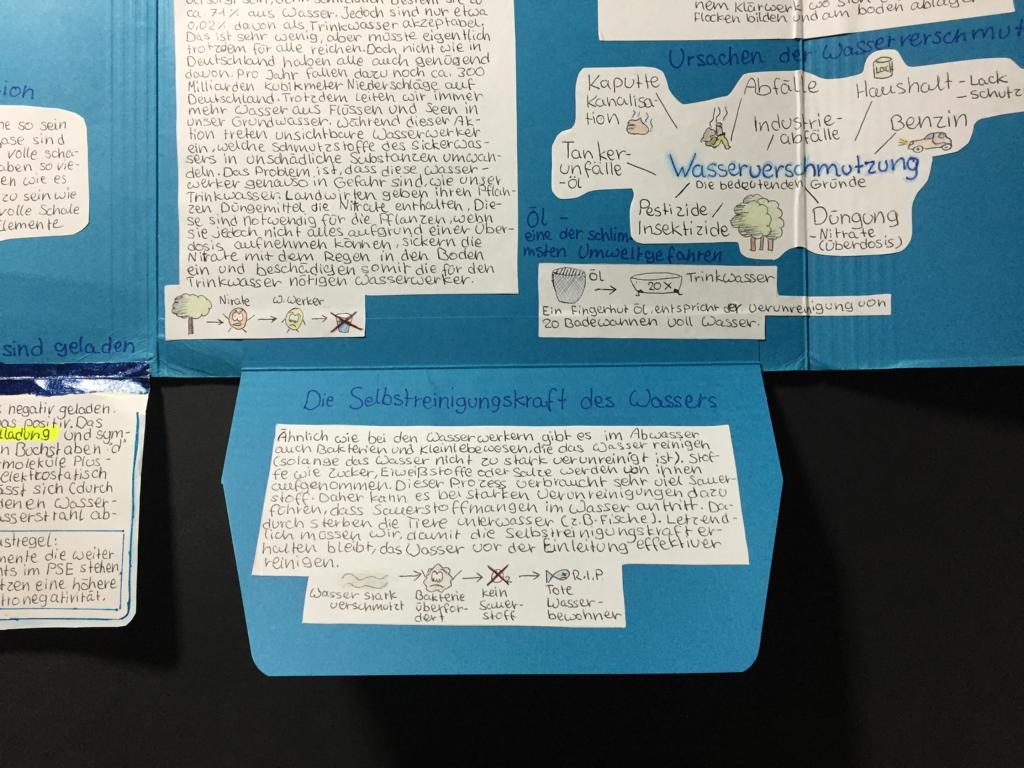 ion
ne so sein
ase sind
volle scha-
aben so vie-
en wie es
zu sein wie
volle Schale
Elemente
sind geladen
s negativ geladen.
as positiv. Das
lladung und sym-
n Buchstaben "d"
rmoleküle Plus
elektrostatisch
ässt sich (durch
denen Wasser-
asserstrahl ab-
astregel:
mente die weiter
hts im PSE stehen,
tzen eine höhere
tronegativität.
ca 71% aus Wasser. Jedoch sind nur etwa
0,02% davon als Trinkwasser akzeptabel.
Das ist sehr wenig, aber müsste eigentlich
trotzdem für alle reichen. Doch nicht wie in
Deutschland haben alle auch genügend
davon. Pro Jahr fallen dazu noch ca. 300
Milliarden Kubikmeter Niederschläge auf
Deutschland. Trotzdem leiten wir immer
mehr Wasser aus Flüssen und Seen in
unser Grundwasser. Während dieser Ak-
tion treten unsichtbare Wasserwerker
ein, welche Schmutzstoffe des Sickerwas-
sers in unschädliche Substanzen umwan-
deln. Das Problem ist, dass diese Wasser-
werker genauso in Gefahr sind, wie unser
Trinkwasser. Landwirten geben ihren Pflan-
zen Düngemittel die Nitrate enthalten. Die-
se sind notwendig für die Pflanzen, wenn
sie jedoch nicht alles aufgrund einer Über-
dosis aufnehmen können, sickern die
Nitrate mit dem Regen in den Boden
ein und beschädigen somit die für den
Trinkwasser nötigen Wasserwerker.
Nirate W.werker
nem Klärwerk wo sich
flocken bilden und am boden ablager
Ursachen der Wasserverschmut
Kaputte
Kanalisa-
tion
Abfälle
Haushalt - Lack
- Schutz
Lack
Industrie-
abfälle
Benzin
Tanker-
unfälle
-Öl
Wasserverschmutzung
Die bedeutenden Gründe
Pestizide/
Insektizide
Düngung
- Nitrate
(Überdosis)
Öl -
eine der schlim-
msten Umweltgefahren
Öl → 20x Trinkwasser
Ein Fingerhut Öl, entspricht der Verunreinigung von
20 Badewannen voll Wasser.
Die Selbstreinigungskraft des Wassers
Ähnlich wie bei den Wasserwerkern gibt es im Abwasser
auch Bakterien und Kleinlebewesen, die das Wasser reinigen
(solange das Wasser nicht zu stark verunreinigt ist). Stof-
fe wie Zucker, Eiweißstoffe oder Salze werden von ihnen
aufgenommen. Dieser Prozess verbraucht sehr viel Sauer-
stoff. Daher kann es bei starken Verunreinigungen dazu
führen, dass Sauerstoffmangen im Wasser antritt. Da-
durch sterben die Tiere unterwasser (z.B. Fische). Letzend-
lich müssen wir, damit die Selbstreinigungskraft er-
halten bleibt, das Wasser vor der Einleitung effektiver
reinigen.
R.I.P
Wasser stark
verschmutzt
Bakterie
überfor-
dert
kein
Sauer-
stoff
Tote
Wasser-
bewohner